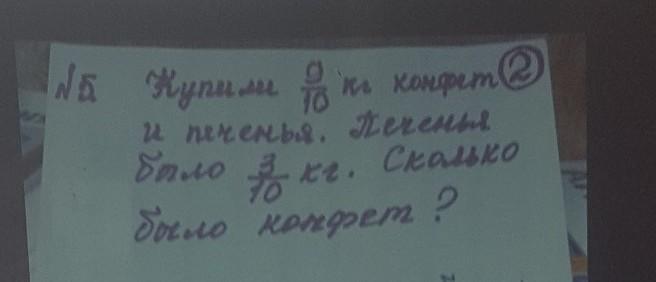 №5 Купили 9/10 кг конфет ②
и печенья. Печенья
было 3/10 кг. Сколько
было конфет?